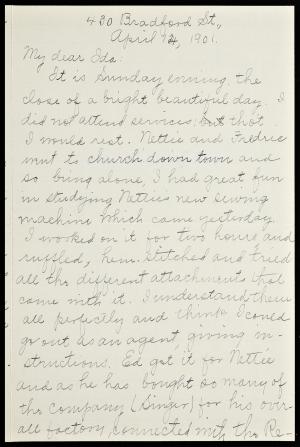 420 Bradford St.,
April 14, 1901.
My dear Ida:
It is Sunday evening, the
close of a bright beautiful day. I
did not attend services but thot
I would rest. Nettie and Fredric
went to church down town and
so being alone, I had great fun
in studying Nettie's new sewing
machine which came yesterday.
I worked on it for two hours and
ruffled, hem-stitched and tried
all the different attachments that
come with it. I understand them
all perfectly and think I could
go out as an agent, giving in-
structions. Ed got it for Nettie
and as he has bought so many of
the company (Singer) for his over-
all factory, connected with the Re-